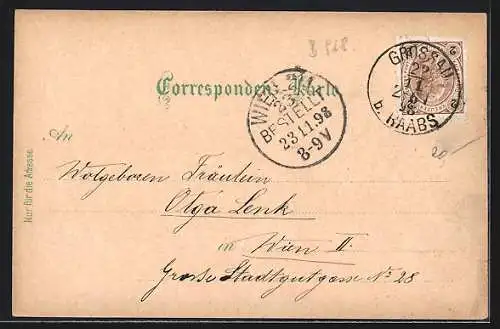 B 928
Correspondenz-Karte
GROSSAU
22
11
98
b. RAABS
2
WIEN 2/1
BESTELLT
23.11.98
8-9V
20,-
An
Wolgeboren Fräulein
Olga Lenk
in Wien II.
Grosse Stadtgutgasse No 28
Nur für die Adresse.